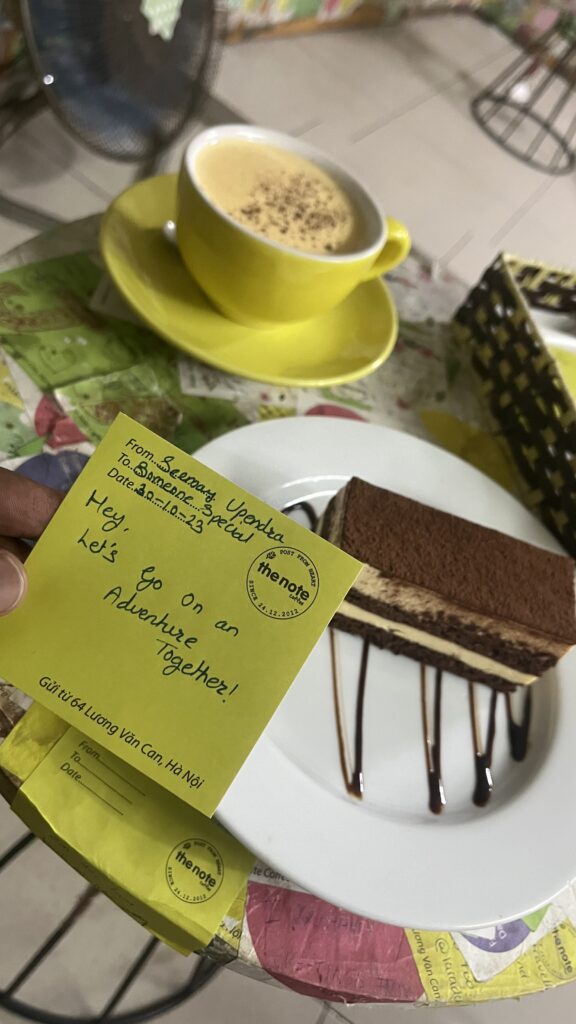 From... Seemay Upendra
To... Someone Special
Date. 30-10-23
Hey,
Let's Go On an
Adventure
Together!
POST FROM HEART
the note
coffee
SINCE 24.12.2012
Gửi từ 64 Lương Văn Can, Hà Nội
From
To
Date
POST FROM HEART
the note
coffee
SINCE 24.12.2012
Lương Văn Can,
the note